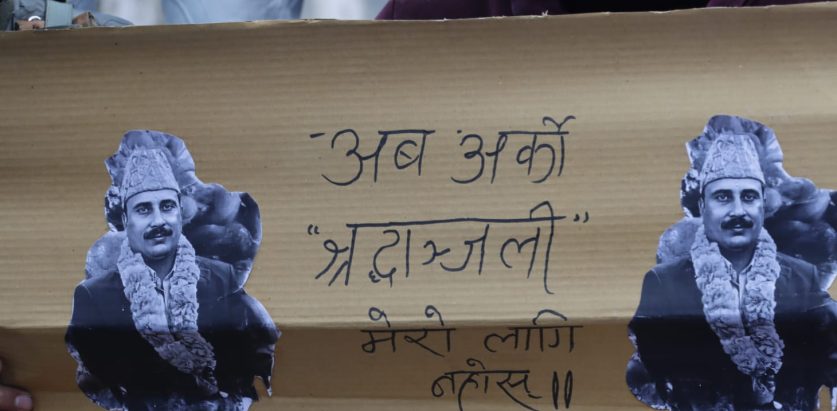 अब अर्को
"श्रद्धाञ्जली"
मेरो लागि
नहोस् ॥